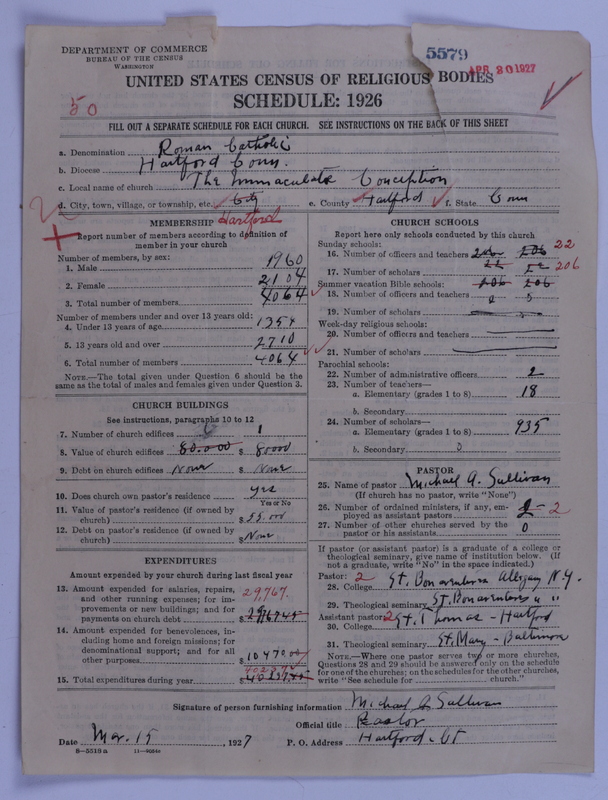 DEPARTMENT OF COMMERCE
BUREAU OF THE CENSUS
WASHINGTON
5579
APR 20 1927
UNITED STATES CENSUS OF RELIGIOUS BODIES
SCHEDULE: 1926
50
FILL OUT A SEPARATE SCHEDULE FOR EACH CHURCH. SEE INSTRUCTIONS ON THE BACK OF THIS SHEET
a. Denomination Roman Catholic
b. Diocese Hartford Conn.
c. Local name of church The Immaculate Conception
d. City, town, village, or township, etc. City e. County Hartford f. State Conn
Hartford
MEMBERSHIP
Report number of members according to definition of
member in your church
Number of members, by sex:
1. Male 1960
2. Female 2104
3. Total number of members 4064
Number of members under and over 13 years old:
4. Under 13 years of age 1354
5. 13 years old and over 2710
6. Total number of members 4064
NOTE.—The total given under Question 6 should be the
same as the total of males and females given under Question 3.
CHURCH BUILDINGS
See instructions, paragraphs 10 to 12
7. Number of church edifices 1
8. Value of church edifices 80.000 $ 80000
9. Debt on church edifices None $ None
10. Does church own pastor's residence yes
Yes or No
11. Value of pastor's residence (if owned by
church) $ 35.000
12. Debt on pastor's residence (if owned by
church) $ None
EXPENDITURES
Amount expended by your church during last fiscal year
13. Amount expended for salaries, repairs,
and other running expenses; for im-
provements or new buildings; and for
payments on church debt 29,767. $
14. Amount expended for benevolences, in-
cluding home and foreign missions; for
denominational support; and for all
other purposes $ 10470.00
15. Total expenditures during year 40237 $
CHURCH SCHOOLS
Report here only schools conducted by this church
Sunday schools:
16. Number of officers and teachers 206 206 22
17. Number of scholars 22 22 206
Summer vacation Bible schools: 206 206
18. Number of officers and teachers 0 0
19. Number of scholars
Week-day religious schools:
20. Number of officers and teachers
21. Number of scholars
Parochial schools:
22. Number of administrative officers 2
23. Number of teachers—
a. Elementary (grades 1 to 8) 18
b. Secondary
24. Number of scholars—
a. Elementary (grades 1 to 8) 935
b. Secondary 0
PASTOR
25. Name of pastor Michael A. Sullivan
(If church has no pastor, write "None")
26. Number of ordained ministers, if any, em-
ployed as assistant pastors 2 - 2
27. Number of other churches served by the
pastor or his assistants 0
If pastor (or assistant pastor) is a graduate of a college or
theological seminary, give name of institution below. (If
not a graduate, write "No" in the space indicated.)
Pastor: 2
28. College St. Bonaventura Allegany N.Y.
29. Theological seminary St. Bonaventura " "
Assistant pastor: 2
30. College St. Thomas - Hartford
31. Theological seminary St. Mary - Baltimore
NOTE.—Where one pastor serves two or more churches,
Questions 28 and 29 should be answered only on the schedule
for one of the churches; on the schedules for the other churches,
write "See schedule for church."
Signature of person furnishing information Michael A. Sullivan
Official title Pastor
Date Mar. 15, 1927 P. O. Address Hartford - Ct
8-5519a 11-9064